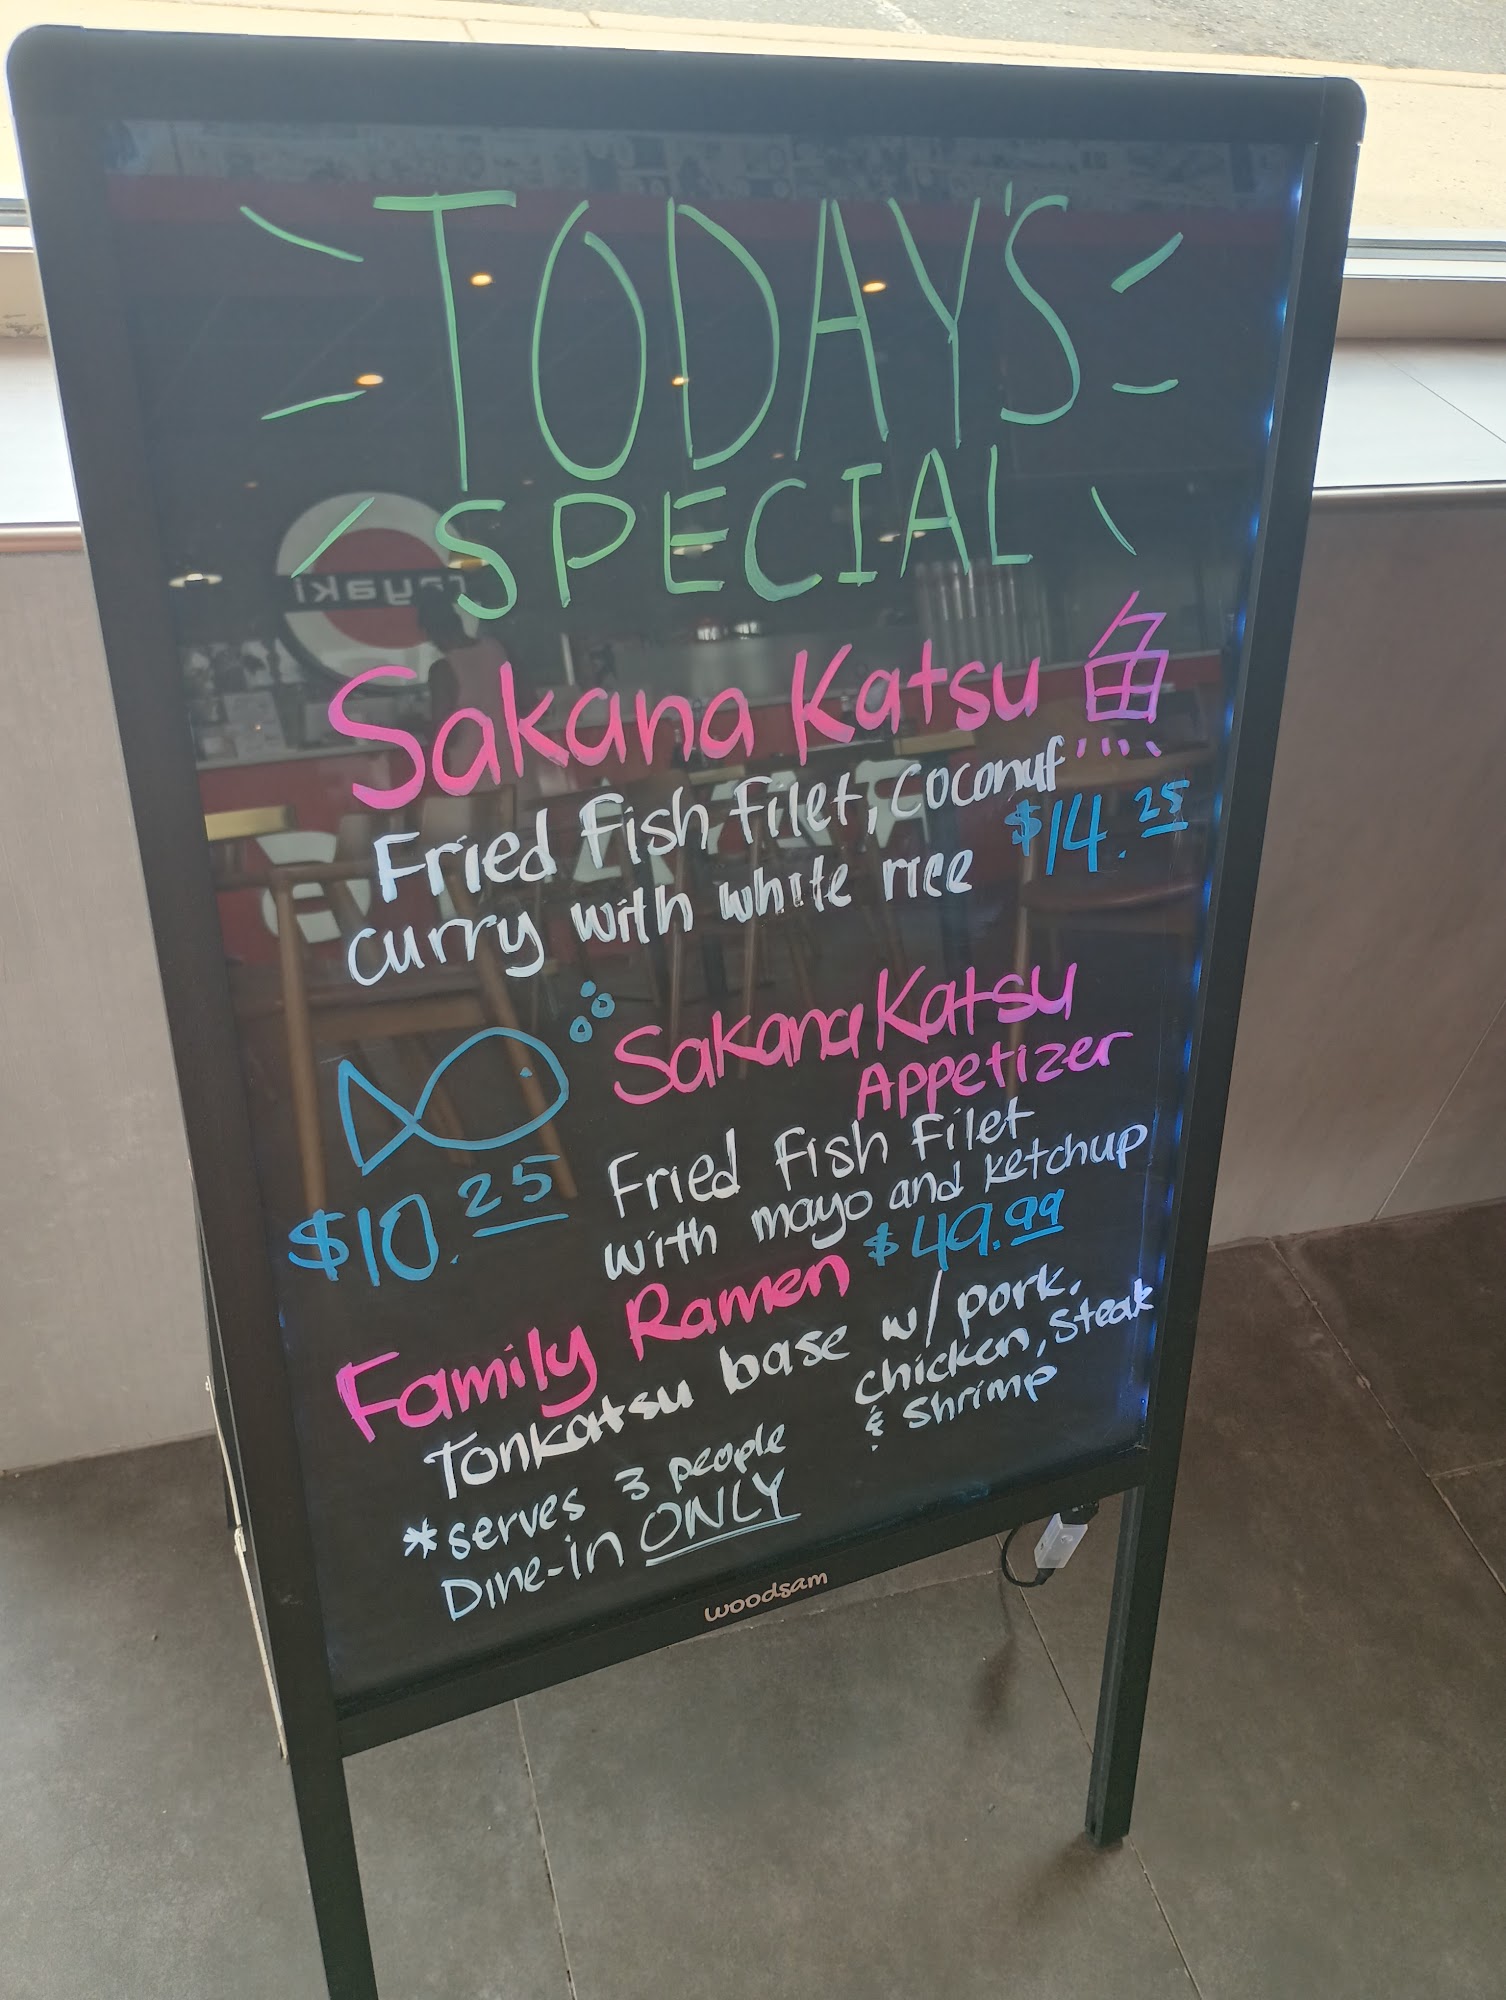 TODAY'S
SPECIAL
Sakana Katsu 魚
Fried Fish Filet, coconut
curry with white rice $14.25
Sakana Katsu
Appetizer
$10.25
Fried Fish Filet
with mayo and ketchup
Family Ramen $49.99
Tonkatsu base w/ pork,
chicken, steak
& Shrimp
*serves 3 people
Dine-in ONLY
woodsam